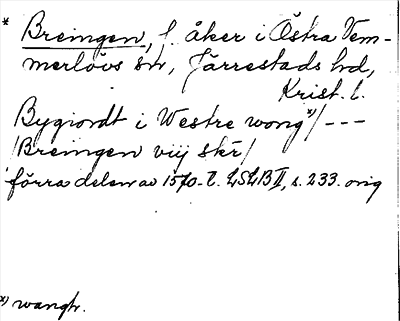 * Breingen, f. åker i Östra Vem-
merlövs sn, Järrestads hd,
Krist. l.
Bygiordt i Westre wong x)/---
/Breingen viij skr/
förra delen av 1570-t. LSLB II, s. 233. orig
x) wangh.